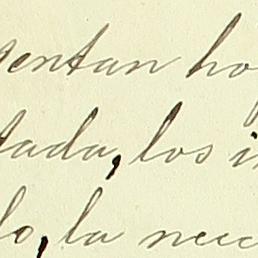 sentan ho
tada, los i
lo, la nece